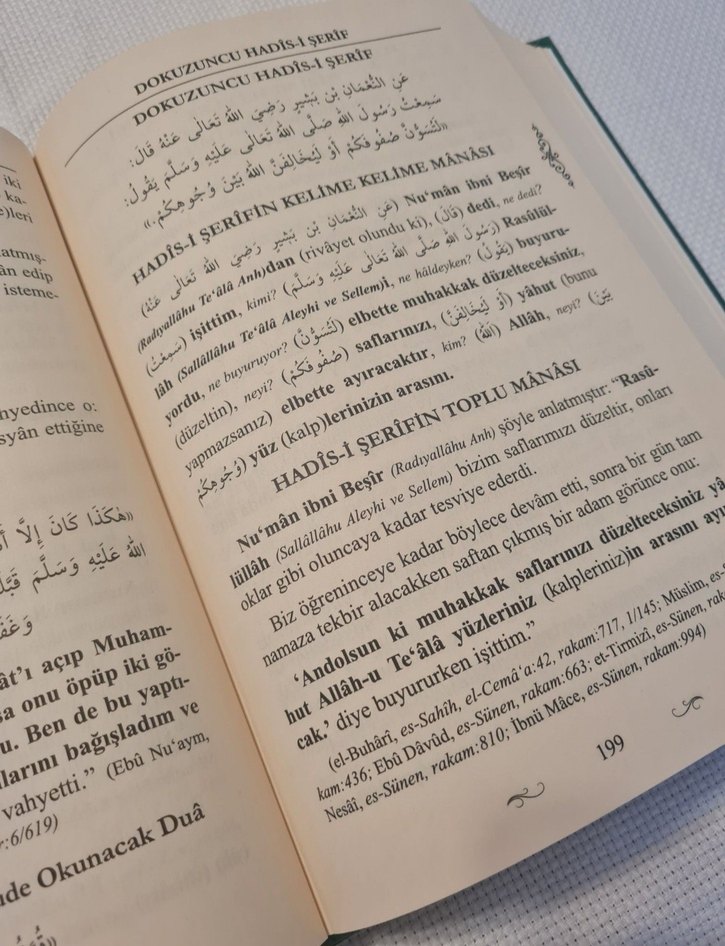 iki
ka-
e)leri
atmış-
ân edip
isteme-
nyedince o:
syân ettiğine
«هٰكَذَا كَانَ إِلَّا
اللهُ عَلَيْهِ وَسَلَّمَ
وَغَفَ
ât’ı açıp Muham-
sa onu öpüp iki gö-
u. Ben de bu yaptı-
larını bağışladım ve
vahyetti.” (Ebû Nu‘aym,
r:6/619)
nde Okunacak Duâ
DOKUZUNCU HADÎS-İ ŞERÎF
DOKUZUNCU HADÎS-İ ŞERÎF
عَنِ النُّعْمَانِ بْنِ بَشِيرٍ رَضِيَ اللهُ تَعَالٰى عَنْهُ قَالَ:
سَمِعْتُ رَسُولَ اللهِ صَلَّى اللهُ تَعَالٰى عَلَيْهِ وَسَلَّمَ يَقُولُ:
«لَتُسَوُّنَّ صُفُوفَكُمْ أَوْ لَيُخَالِفَنَّ اللهُ بَيْنَ وُجُوهِكُمْ.»
HADÎS-İ ŞERÎFİN KELİME KELİME MÂNÂSI
(عَنِ النُّعْمَانِ بْنِ بَشِيرٍ رَضِيَ اللهُ تَعَالٰى عَنْهُ) Nu‘mân ibni Beşîr
(Radıyallâhu Te‘âlâ Anh)dan (rivâyet olundu ki), (قَالَ) dedi, ne dedi?
(سَمِعْتُ) işittim, kimi? (رَسُولَ اللهِ صَلَّى اللهُ تَعَالٰى عَلَيْهِ وَسَلَّمَ) Rasûlül-
lâh (Sallâllâhu Te‘âlâ Aleyhi ve Sellem)i, ne hâldeyken? (يَقُولُ) buyuru-
yordu, ne buyuruyor? (لَتُسَوُّنَّ) elbette muhakkak düzelteceksiniz,
(düzeltin), neyi? (صُفُوفَكُمْ) saflarınızı, (أَوْ لَيُخَالِفَنَّ) yâhut (bunu
yapmazsanız) elbette ayıracaktır, kim? (اللهُ) Allâh, neyi? (بَيْنَ
وُجُوهِكُمْ) yüz (kalp)lerinizin arasını.
HADÎS-İ ŞERÎFİN TOPLU MÂNÂSI
Nu‘mân ibni Beşîr (Radıyallâhu Anh) şöyle anlatmıştır: “Rasû-
lüllâh (Sallâllâhu Aleyhi ve Sellem) bizim saflarımızı düzeltir, onları
oklar gibi oluncaya kadar tesviye ederdi.
Biz öğreninceye kadar böylece devâm etti, sonra bir gün tam
namaza tekbir alacakken saftan çıkmış bir adam görünce onu:
‘Andolsun ki muhakkak saflarınızı düzelteceksiniz yâ-
hut Allâh-u Te‘âlâ yüzleriniz (kalpleriniz)in arasını ayı
cak.’ diye buyururken işittim.”
(el-Buhârî, es-Sahîh, el-Cemâ‘a:42, rakam:717, 1/145; Müslim, es-
kam:436; Ebû Dâvûd, es-Sünen, rakam:663; et-Tirmizî, es-Sünen, rak
Nesâî, es-Sünen, rakam:810; İbnü Mâce, es-Sünen, rakam:994)
199